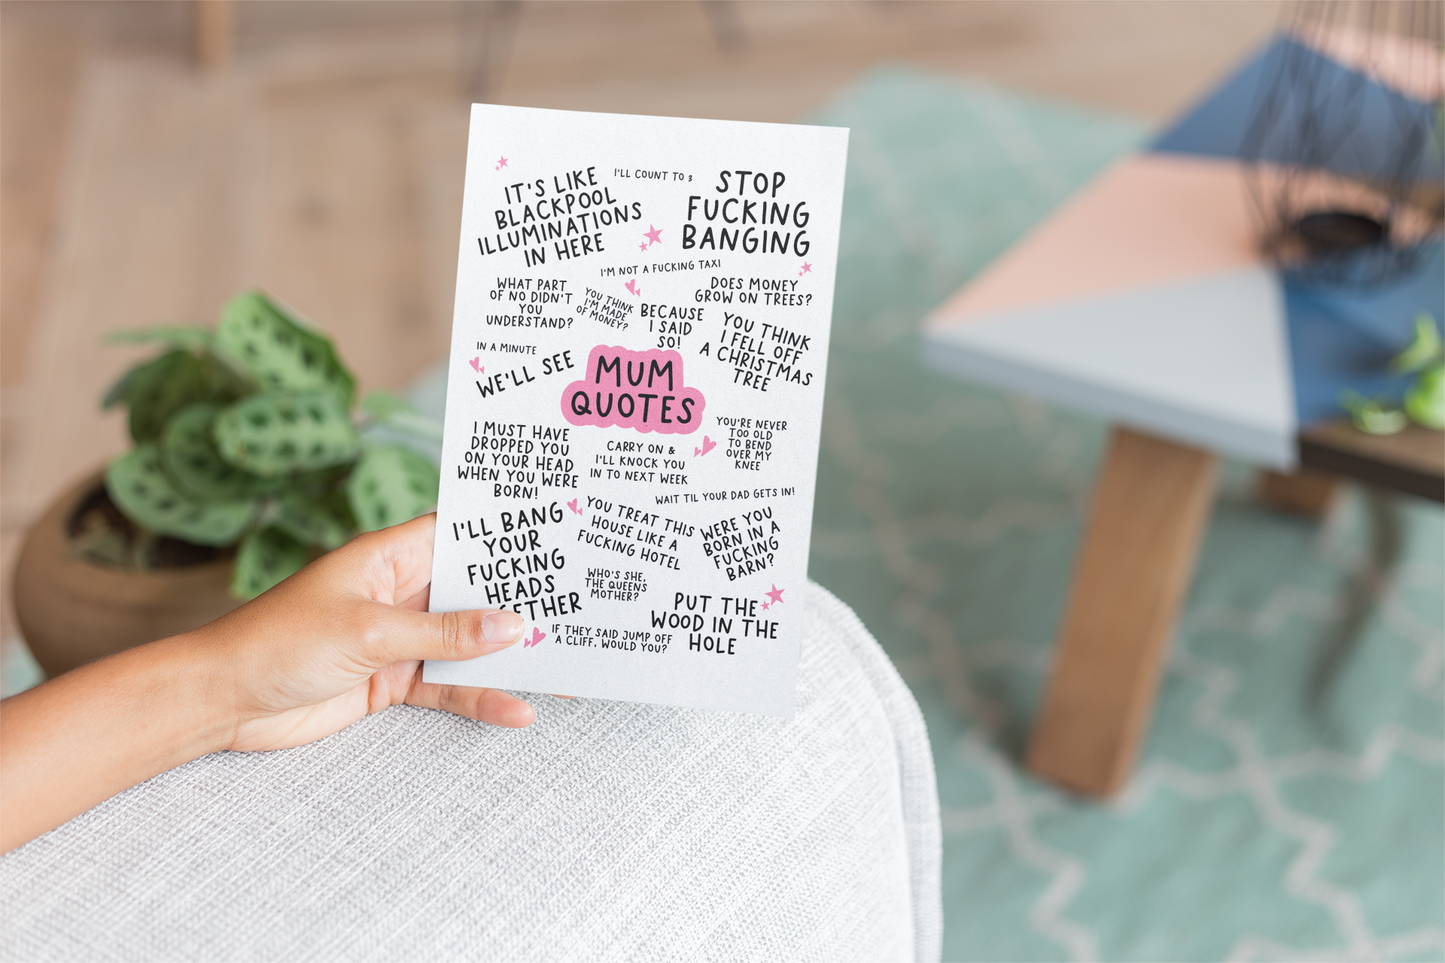 IT'S LIKE
BLACKPOOL
ILLUMINATIONS
IN HERE
I'LL COUNT TO 3
STOP
FUCKING
BANGING
I'M NOT A FUCKING TAXI
WHAT PART
OF NO DIDN'T
YOU
UNDERSTAND?
YOU THINK
I'M MADE
OF MONEY?
BECAUSE
I SAID
SO!
DOES MONEY
GROW ON TREES?
YOU THINK
I FELL OFF
A CHRISTMAS
TREE
IN A MINUTE
WE'LL SEE
MUM
QUOTES
I MUST HAVE
DROPPED YOU
ON YOUR HEAD
WHEN YOU WERE
BORN!
CARRY ON &
I'LL KNOCK YOU
IN TO NEXT WEEK
YOU'RE NEVER
TOO OLD
TO BEND
OVER MY
KNEE
WAIT TIL YOUR DAD GETS IN!
I'LL BANG
YOUR
FUCKING
HEADS
GETHER
YOU TREAT THIS
HOUSE LIKE A
FUCKING HOTEL
WERE YOU
BORN IN A
FUCKING
BARN?
WHO'S SHE,
THE QUEENS
MOTHER?
PUT THE
WOOD IN THE
HOLE
IF THEY SAID JUMP OFF
A CLIFF, WOULD YOU?